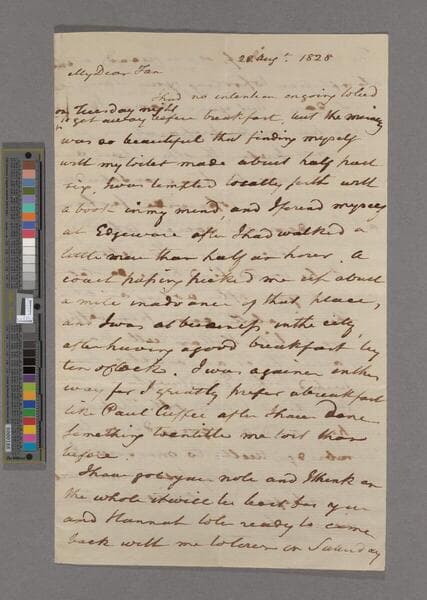 28 Augt. 1828
My Dear Fan
I had no intention on going to bed
on Tuesday night
to get away before breakfast, but the morning
was so beautiful that finding myself
with my toilet made about half past
six, I was tempted to sally forth with
a book in my hand and I found myself
at Edgeware after I had walked a
little more than half an hour. A
coach passing picked me up about
a mile in advance of that place,
and I was at business in the city,
after having a good breakfast by
ten oClock. I was a gainer in the
way for I greatly prefer a breakfast
like Paul Cuffee after I have done
something to entitle me to it than
before.
I have got your note and I think on
the whole it will be best for you
and Hannah to be ready to come
back with me to town on Saturday